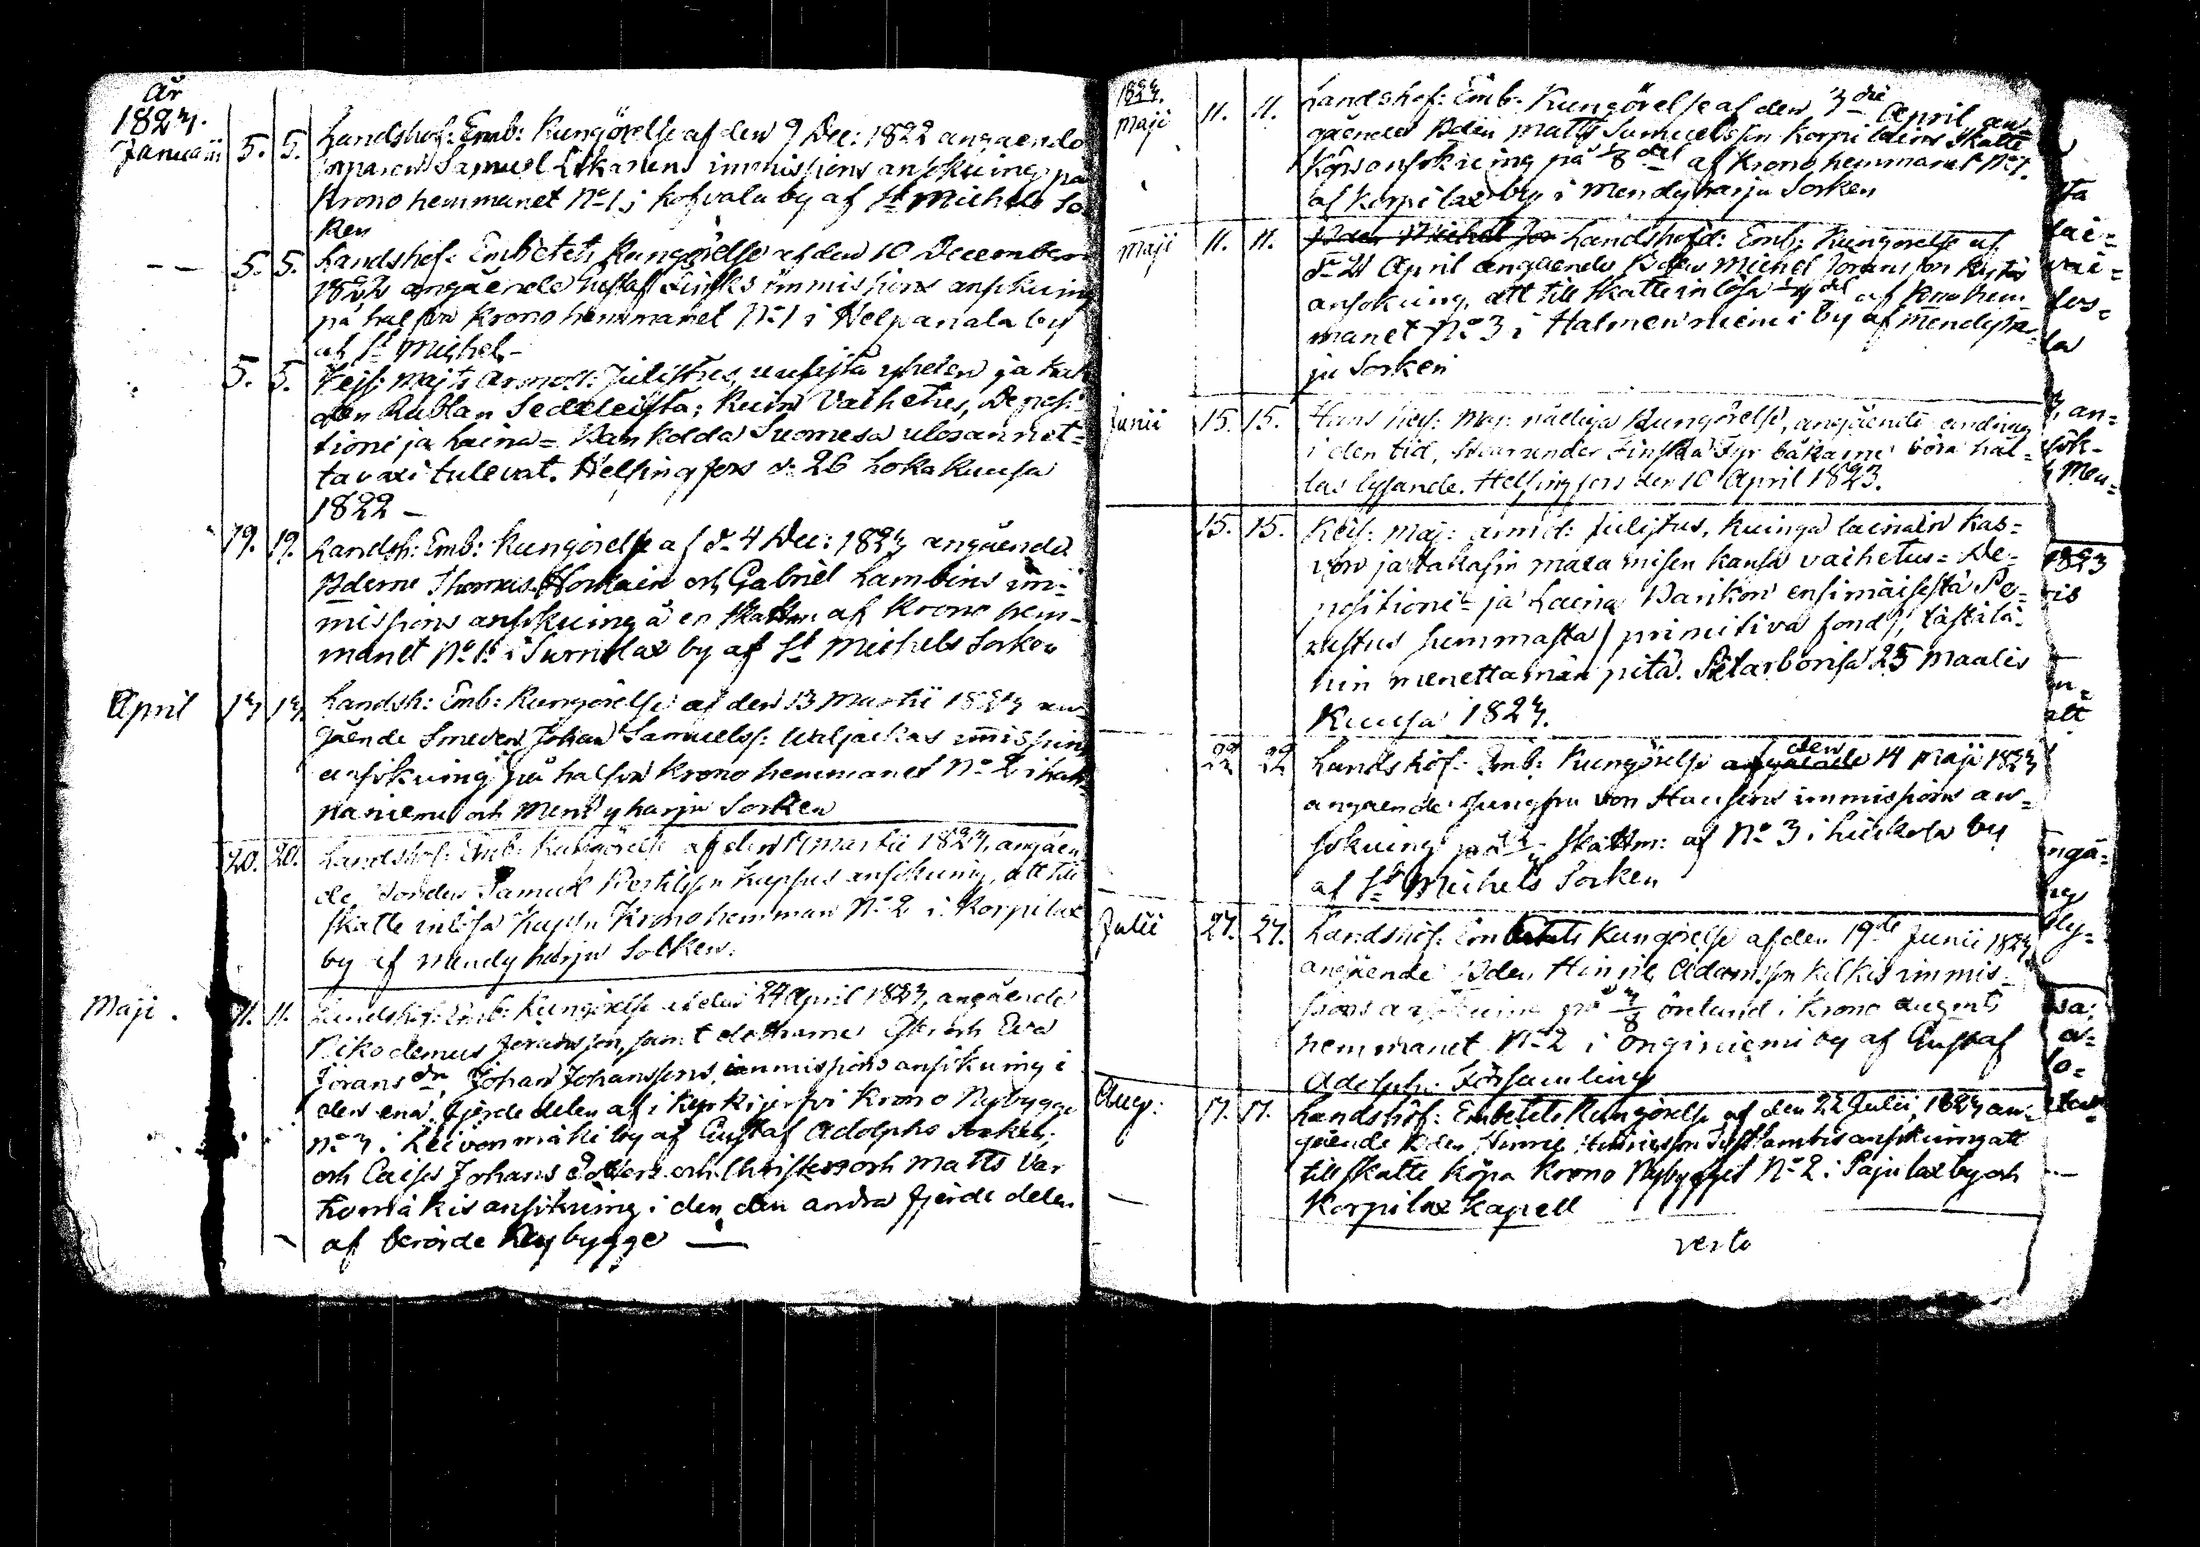 År
1823.
Januarii 5. 5. Landshöf: Emb: Kungörelse af den 9 Dec: 1822 angaende
Inparen Samuel Likanens immissions ansökning på
Krono hemmanet No 1, i Kofvala by af St Michels So
ken
— — 5. 5. Landshöf: Embetets Kungörelse af den 10 December
1822 angående Gustaf Finsks immissions ansökning
på halfva Krono hemmanet No 1 i Helpanala by
af St Michel –
5. 5. Keis: Majts Armoll: Julistus, uusista yheden ja kah
den Rublan Sedeleista; Kuin Vaihetus, Deposi
tioni ja Laina= Bankolda Suomesa ulosannet=
tavaxi tulevat. Helsingfors d: 26 Lokakuusa
1822 –
19. 19. Landsh: Emb: Kungörelse af d. 4 Dec: 1823 angående
Bderne Thomas och Gabriel Lambins im=
missions ansökning å en skattm af Krono hem=
manet No 1 i Surnulax by af St Michels Sorken
April 13 13 Landsh: Emb: Kungörelse af den 13 Martii 1823 an=
gående Smeden Johan Samuelss: Waljackas immissions
ansökning på halfva Krono hemmanet No 2 i Hah=
naniemi och Mendyharju Sorken
20. 20. Landshöf: Emb: Kungörelse af den 14 Martii 1823, angåen
de Bonden Samuel Kupsus ansökning, att till
skatte inlösa Krono hemman No 2 i Korpilax
by af Mendyharju Solken.
Maji. 11. 11. Landshöf: Emb: Kungörelse af den 24 April 1823, angående
Nikodemus Joransson, samt döttrarne och Eva
Jörans dr Johan Johanssons, immissions ansökning i
den ena fjerde delen af i Kyrkijerfvi Krono Nybygge
No 3 i Leivonmäki by af Gustaf Adolphs Sorken,
och Caisa Johans Dotters och Christers och Matts Var
tiomäkis ansökning i den den andra fjerde delen
af berörde Nybygge —
1823.
Maji 11. 11. Landshöf: Emb: Kungörelse af den 3die April an=
gaendes Bden Matts Samuelsson Korpilains Skatte
köps ansökning på 1/8 del af Krono hemmanet No 1.
af Korpilax by i Mendyharju Sorken
Maji 11. 11. Landshöfd: Emb: Kungörelse af
d. 21 April angaende Bden Michel Joransson
ansökning, att till skatte inlösa del af Krono hem
manet No 3 i Halmenniemi by af Mendyhar=
ju Sorken
Junii 15. 15. Hans Keis: Maj: nådiga Kungörelse, angående ändring
i den tid, hvarunder Finska Fyr båkarne böra hål=
las lysande. Helsingfors den 10 April 1823.
15. 15. Keis: Maj: armd: Julistus, kuinga lainain kas=
von ja takasin maxamisen kansa Vaihetus= De=
positioni= ja Laina Bankon ensimäisestä Pe=
rustus summasta / primitiva fond /, tästälä=
hin menettämän pitä. Pietarborisa 25 Maalis
Kuusa 1823.
22 22 Landshöf: Emb: Kungörelse af den 14 Maji 1823
angaende Jungfru von Hausens immissions an=
sökning på skattm: af No 3 i Liukola by
af St Michels Sorken
Julii 27. 27. Landshöf: Embetets Kungörelse af den 19de Junii 1823
angående Bden Hinric Adamsson Kilkis immis=
sions ansökning på 3/8 öretund i Krono augents
hemmanet No 2 i Onginiemi by af Gustaf
Adolphs Församling
Aug: 17. 17. Landshöf: Embetets Kungörelse af den 22 Julii, 1823 an=
gående Bden ansökning att
till skatte köpa Krono Nybygget No 2 i Pajulax by och
Korpilax Kapell
verto